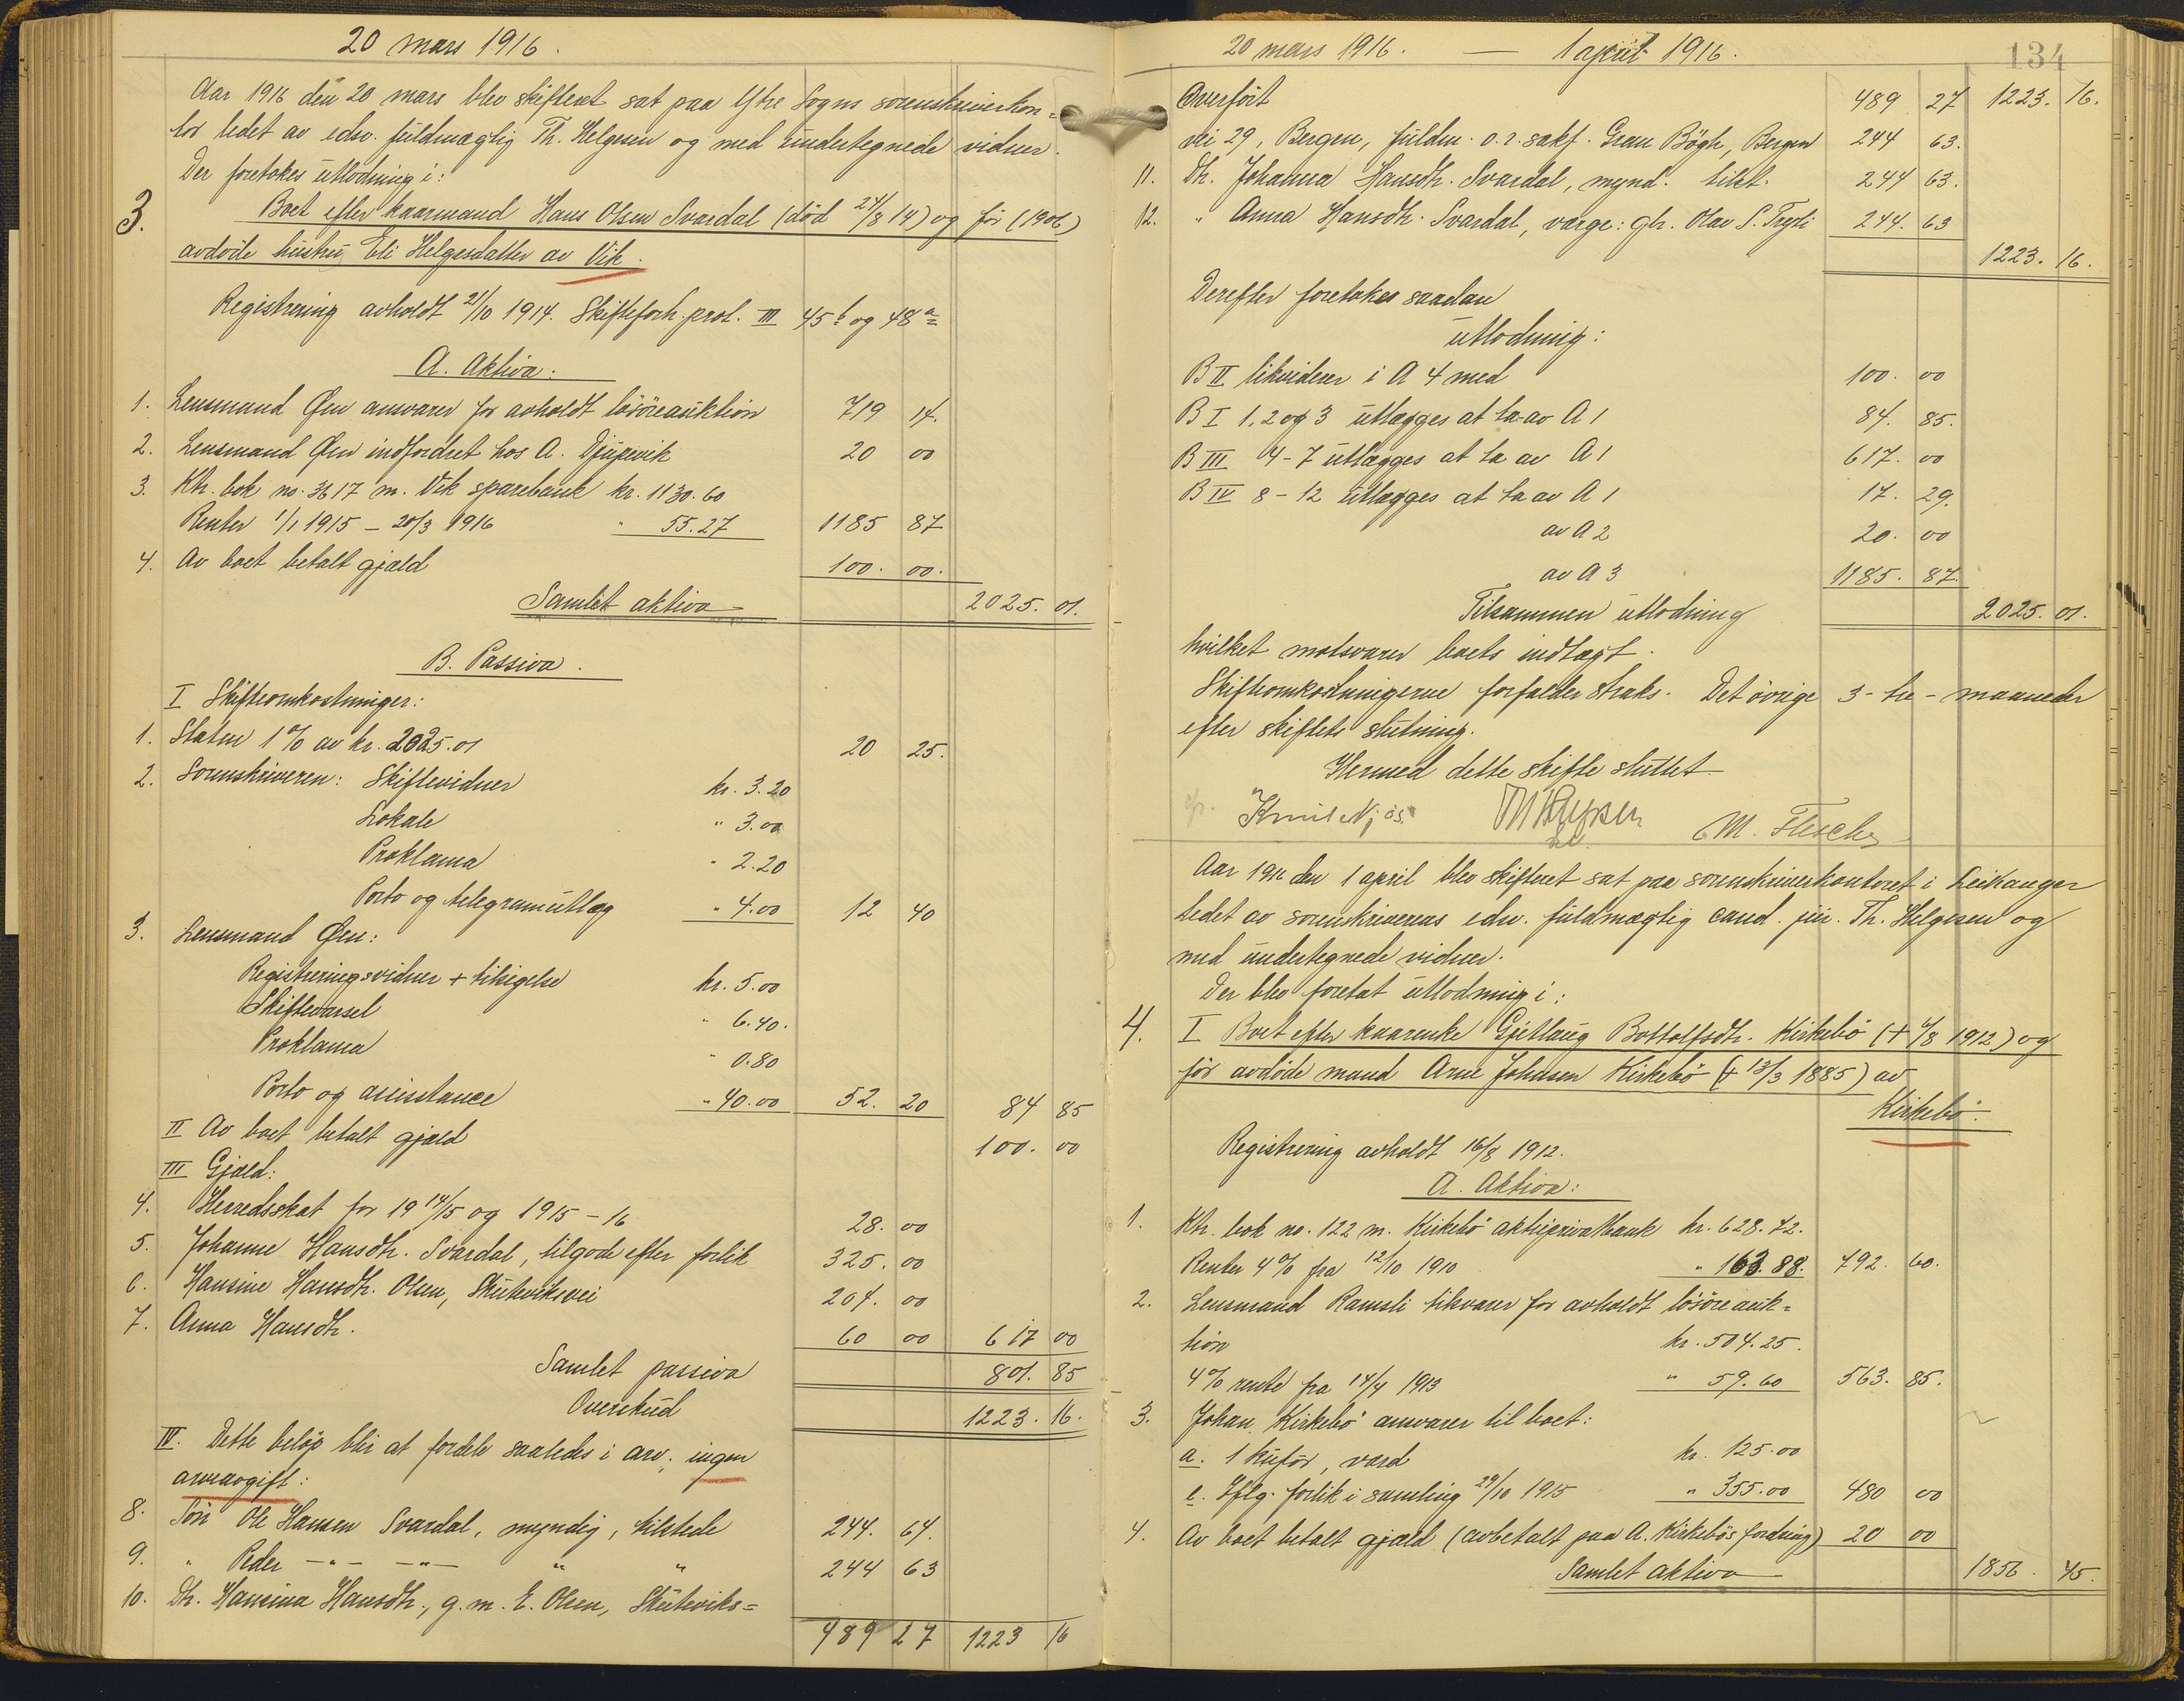 20 mars 1916.
Aar 1916 den 20 mars blev skifteret sat paa Ytre Sogns sorenskriverkon=
tor ledet av edsv. fuldmægtig Th. Helgesen og med undertegnede vidner.
Der foretokes utlodning i:
3. Boet efter kaarmand Hans Olsen Svardal (död 24/8 14) og för (1906)
avdöde hustru Eli Helgesdatter av Vik.
Registrering avholdt 21/10 1914. Skifteforh. prot. III 45 b og 48 a
A. Aktiva.
1. Lensmand Øen ansvarer for avholdt lösöreauktion 719 14.
2. Lensmand Øen indfordret hos A. Djupevik 20 00
3. Ktr. bok no. 3617 m. Vik sparebank kr. 1130.60
Renter 1/1 1915 - 20/3 1916 " 55.27 1185 87
4. Av boet betalt gjæld 100. 00.
Samlet aktiva 2025. 01.
B. Passiva.
I Skifteomkostninger:
1. Staten 1% av kr. 2025.01 20 25.
2. Sorenskriveren: Skiftevidner kr. 3.20
Lokale " 3.00
Proklama " 2.20
Porto og telegramutlæg " 4.00 12 40
3. Lensmand Øen:
Registreringsvidner + tilsigelse kr. 5.00
Skiftevarsel " 6.40.
Proklama " 0.80
Porto og assistance " 40.00 52. 20 84 85
II Av boet betalt gjæld 100. 00
III Gjæld:
4. Herredsskat for 19 14/15 og 1915 - 16 28. 00
5. Johanne Hansdtr. Svardal, tilgode efter forlik 325. 00
6. Hansine Hansdtr. Olsen, Skuteviksvei 204. 00
7. Anna Hansdtr. 60 00 617 00
Samlet passiva 801. 85
Overskud 1223. 16.
IV. Dette beløp blir at fordele saaledes i arv; ingen
arveavgift:
8. Sön Ole Hansen Svardal, myndig, tilstede 244. 64.
9. " Peder -"- -"- " " 244 63
10. Dtr. Hansina Hansdtr., g. m. E. Olsen, Skuteviks=
489 27 1223 16
20 mars 1916. — 1 april 1916.
134
Overfört 489 27 1223. 16.
vei 29, Bergen, fuldm. o.r.sakf. Gran Bögh, Bergen 244 63.
11. Dtr. Johanna Hansdtr. Svardal, mynd. tilst. 244 63.
12. " Anna Hansdtr. Svardal, værge: gbr. Olav S. Tryti 244. 63
1223. 16.
Derefter foretokes saadan
utlodning:
B II likviderer i A 4 med 100. 00
B I 1, 2 og 3 utlægges at ta av A 1 84. 85.
B III 4-7 utlægges at ta av A 1 617. 00
B IV 8-12 utlægges at ta av A 1 17. 29.
av A 2 20. 00
av A 3 1185. 87.
Tilsammen utlodning 2025. 01.
hvilket motsvarer boets indtægt.
Skifteomkostningerne forfalder straks. Det övrige 3 - tre - maaneder
efter skiftets slutning.
Hermed dette skifte sluttet
Knut Njøs. Th Helgesen M. Flesche
Aar 1916 den 1 april blev skifteret sat paa sorenskriverkontoret i Leikanger
ledet av sorenskriverens edsv. fuldmægtig cand. jur. Th. Helgesen og
med undertegnede vidner.
Der blev foretat utlodning i:
4. I Boet efter kaarenke Gjetlaug Bottolfsdtr. Kirkebö (+ 6/8 1912) og
för avdöde mand Arne Johnsen Kirkebö (+ 13/3 1885) av
Kirkebö.
Registrering avholdt 16/8 1912.
A. Aktiva:
1. Ktr. bok no. 122 m. Kirkebö aktieprivatbank kr. 628.72.
Renter 4% fra 12/10 1910 " 163.88. 792. 60.
2. Lensmand Ramsli tilsvarer for avholdt lösöreauk=
tion kr. 504.25.
4% rente fra 14/4 1913 " 59.60 563. 85.
3. Johan Kirkebö ansvarer til boet:
a. 1 kufór, værd kr. 125.00
b. Iflg. forlik i samling 29/10 1915 " 355.00 480 00
4. Av boet betalt gjæld (avbetalt paa A. Kirkebös fordring) 20 00
Samlet aktiva 1856. 45.